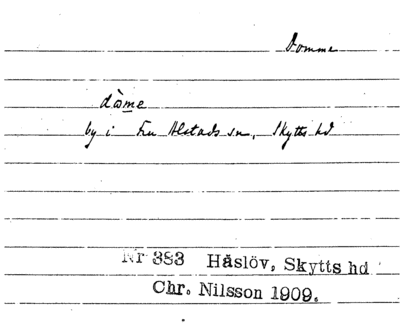 Domme
dòme
by i Fru Alstads sn, Skytts hd
Nr 383 Håslöv, Skytts hd
Chr. Nilsson 1909.